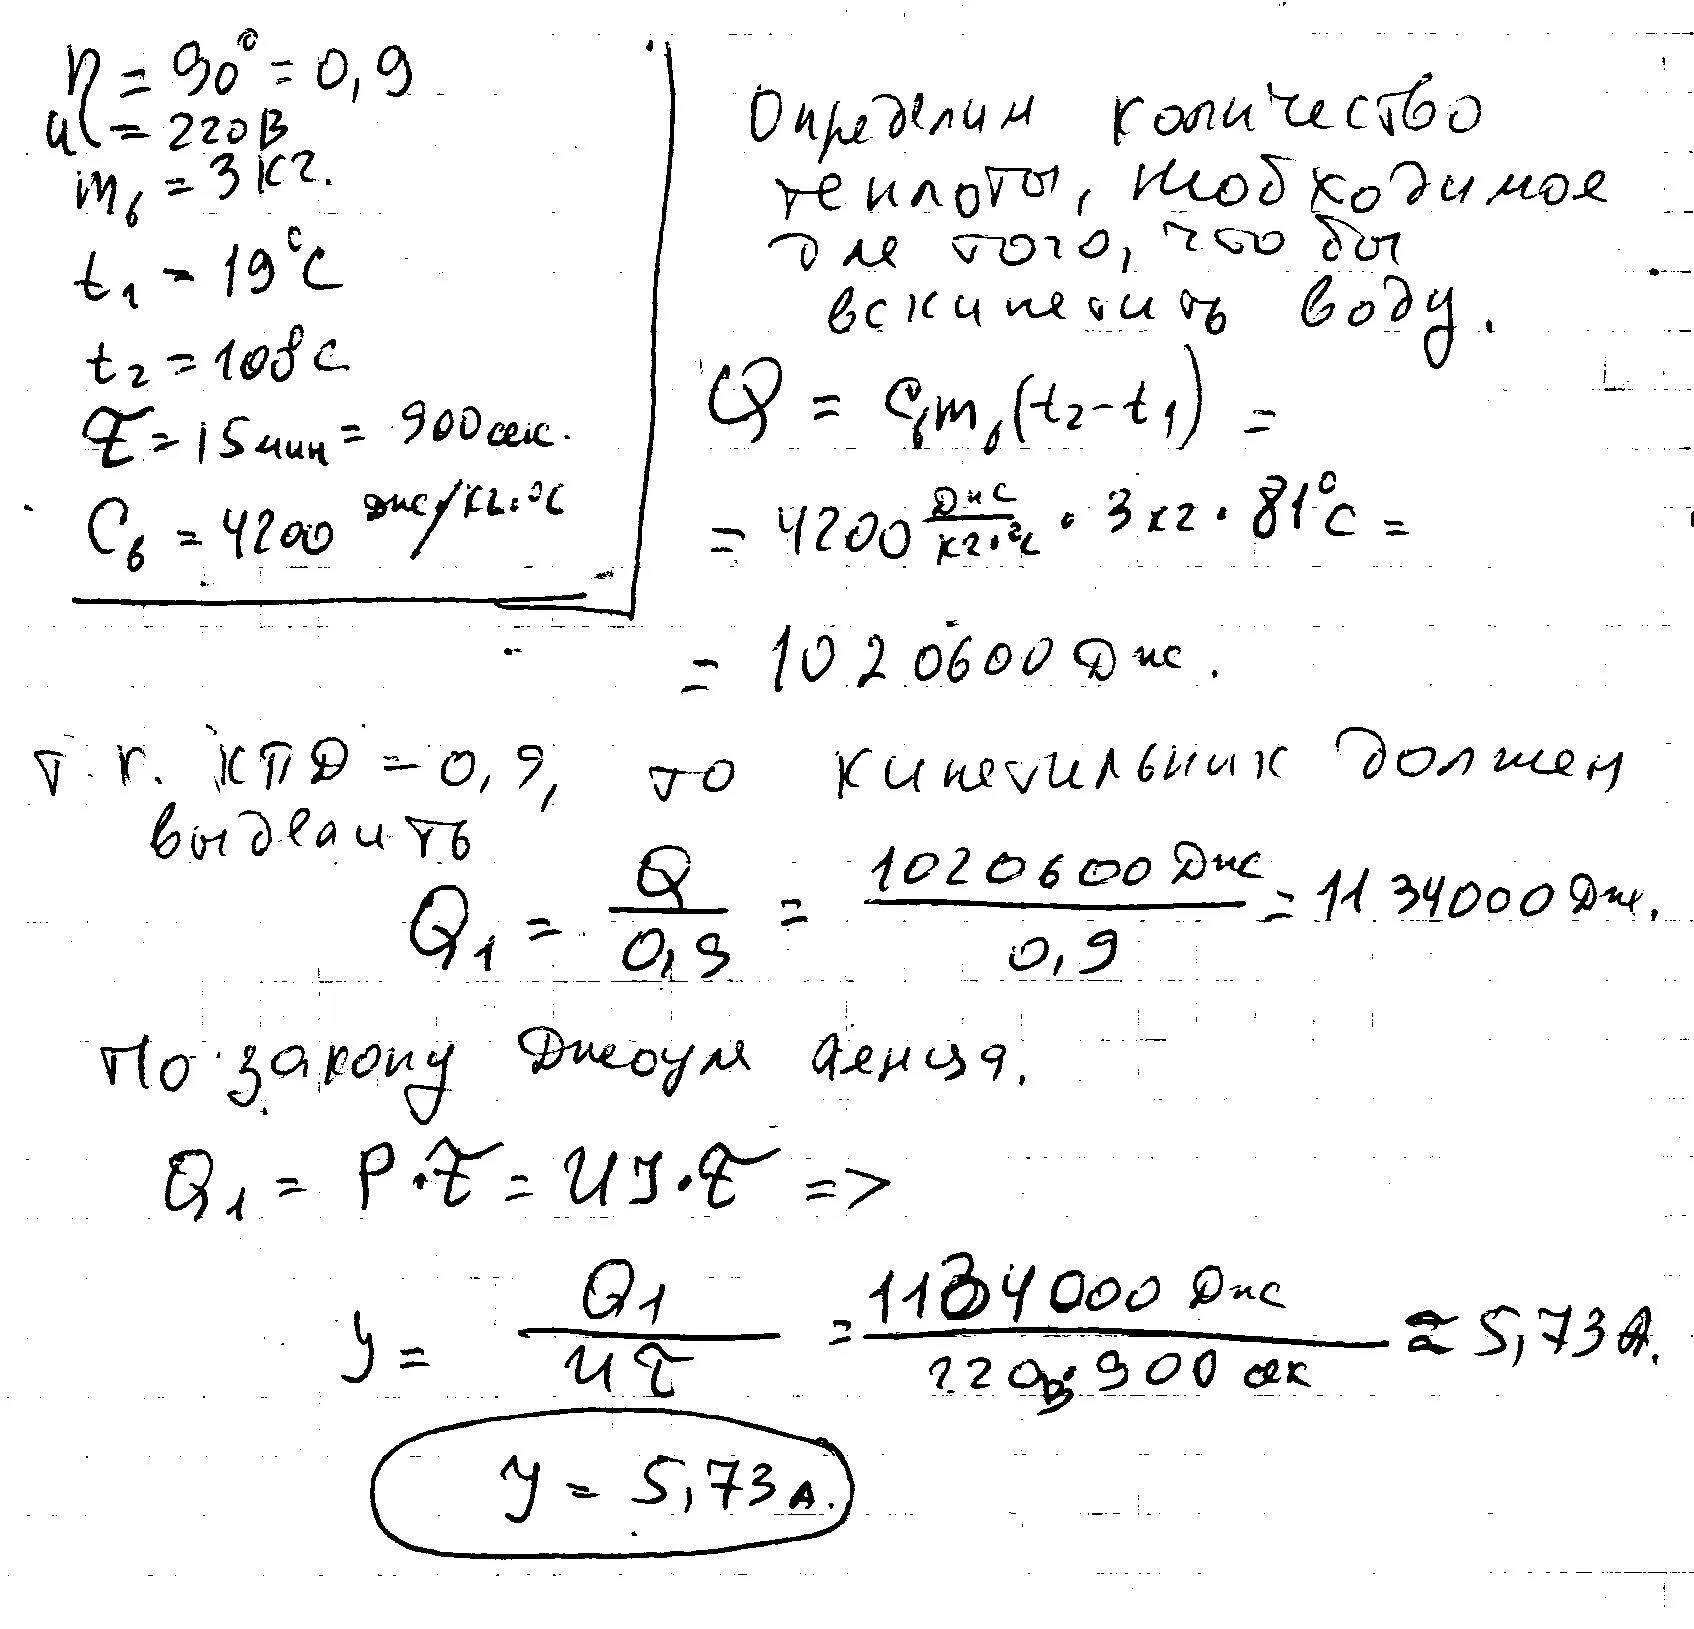 η = 90° = 0,9
U = 220В
mв = 3кг.
t1 = 19°С
t2 = 100°С
τ = 15мин = 900сек.
Cв = 4200 Дж/кг.°С
Определим количество
теплоты, необходимое
для того, что бы
вскипетить воду.
Q = Cвmв(t2-t1) =
= 4200 Дж/кг.°С · 3кг · 81°С =
= 1020600 Дж.
т.к. КПД = 0,9, то кипетильник должен
выделить
Q1 = Q/0,9 = 1020600 Дж/0,9 = 1134000 Дж.
По закону Джоуля Ленца.
Q1 = P·τ = UJ·τ =>
J = Q1/Uτ = 1134000 Дж/220В·900 сек ≈ 5,73А.
J = 5,73А.